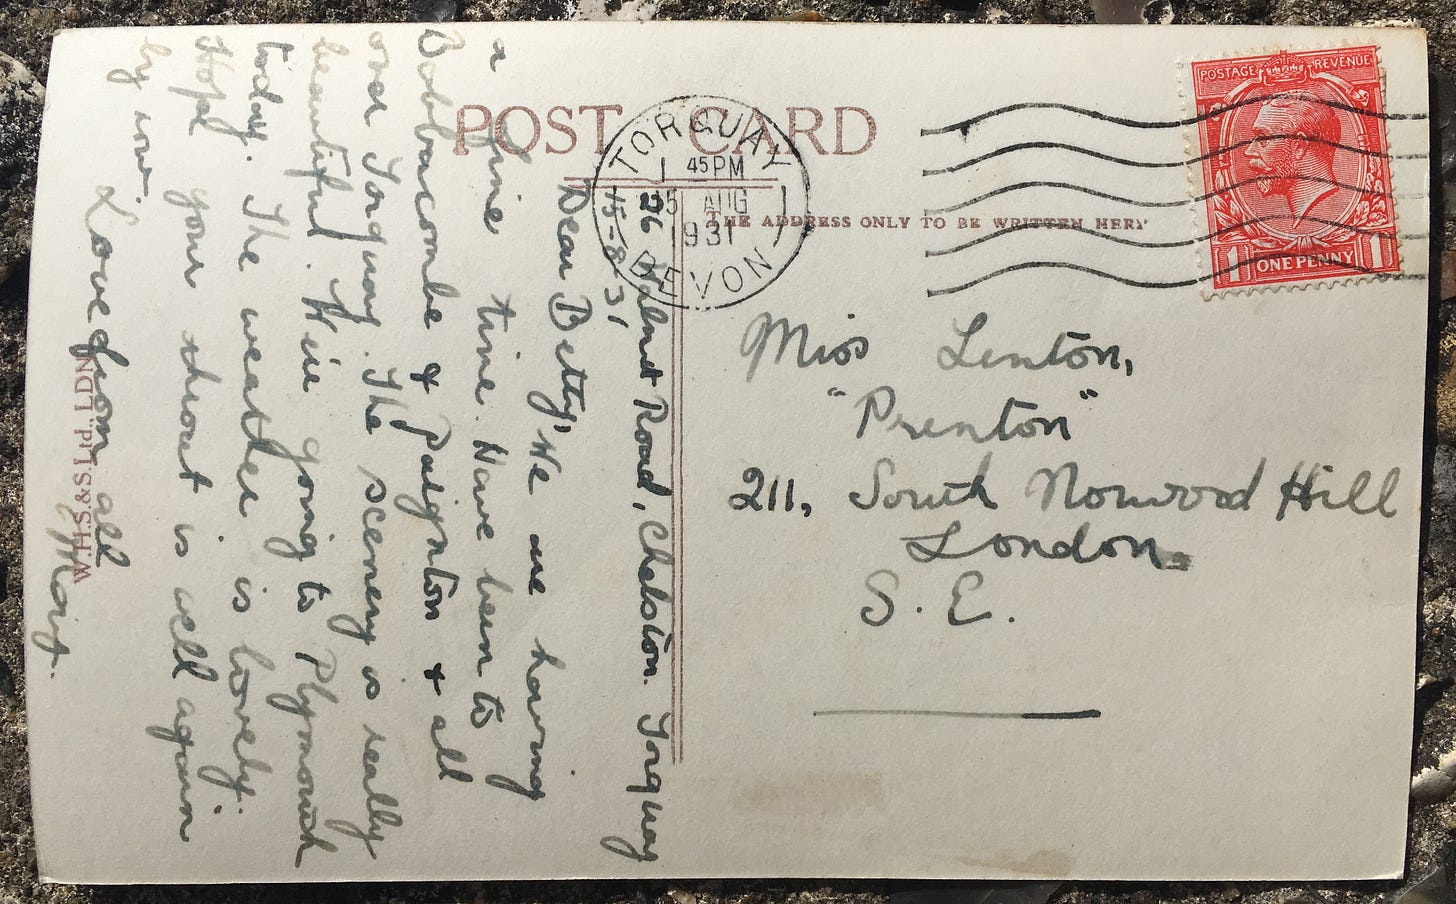 POST CARD
THE ADDRESS ONLY TO BE WRITTEN HERE
POSTAGE REVENUE
1 ONE PENNY 1
TORQUAY
1 45 PM
15 AUG
1931
DEVON
26 Walnut Road, Chelston. Torquay
15-8-31
Dear Betty, We are having
a fine time. Have been to
Babbacombe & Paignton & all
over Torquay. The scenery is really
beautiful. We're going to Plymouth
today. The weather is lovely.
Hope your throat is well again
by now.
Love from all
Mary.
Miss Lenton,
"Prenton"
211, South Norwood Hill
London
S.E.
W.H.S.&S.Ltd., LDN